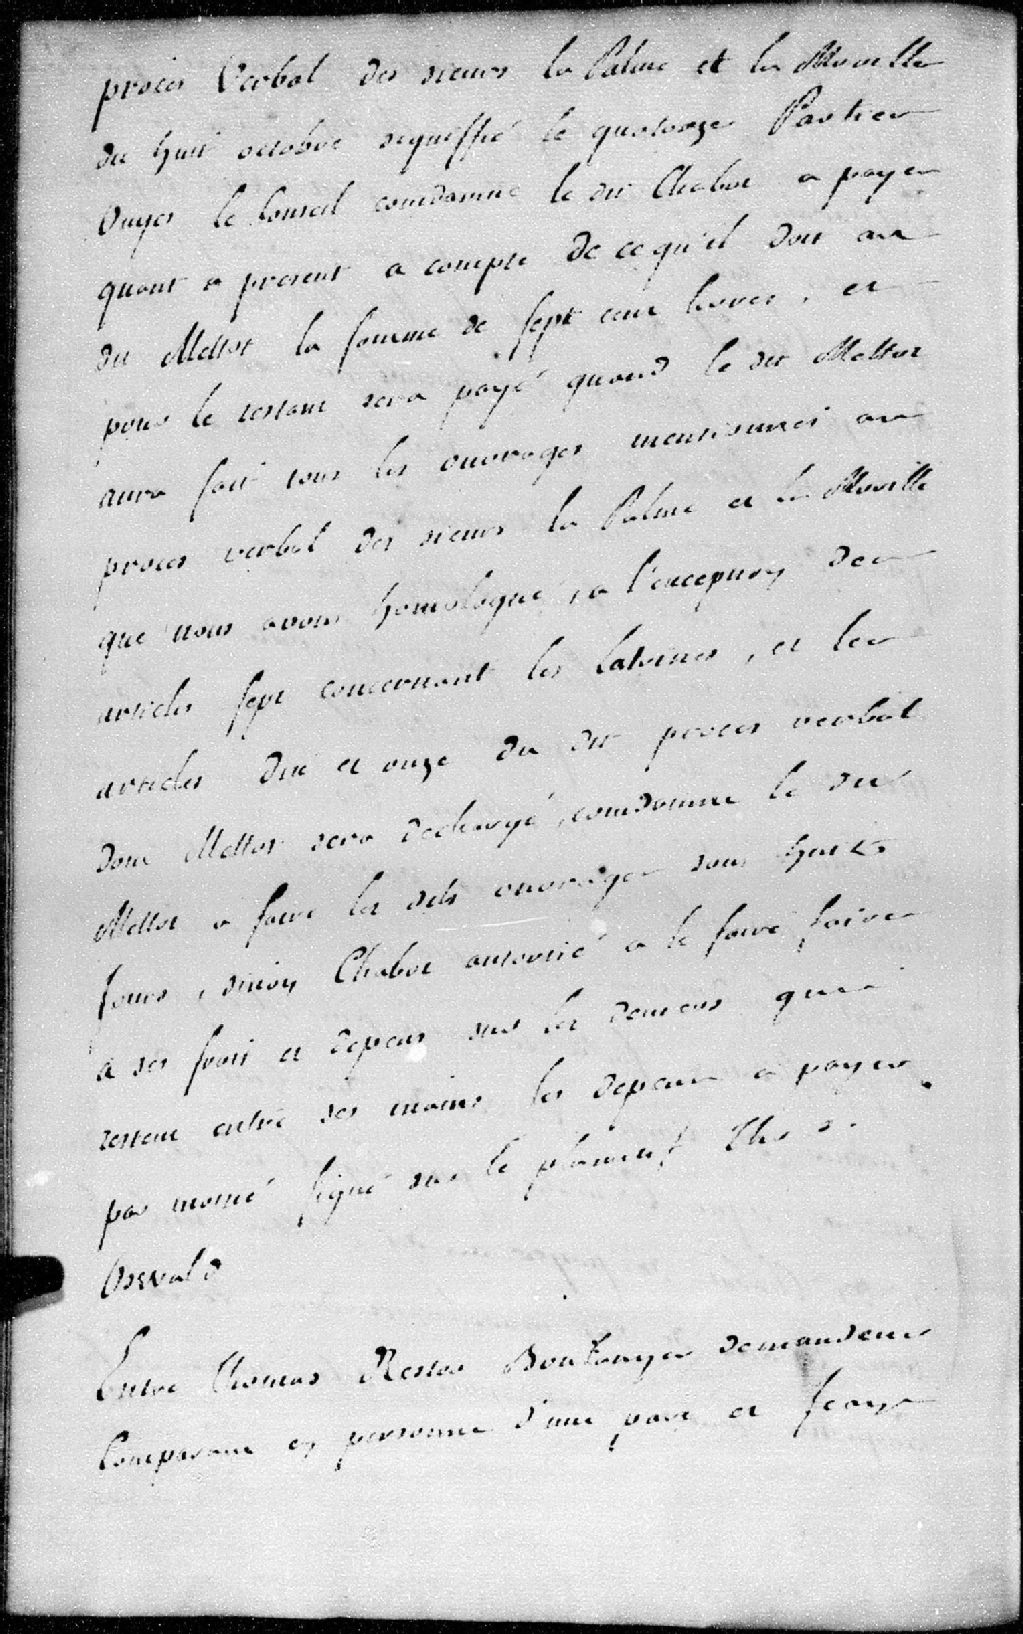 proces Verbal des sieurs la Palme et la Moville
du huit octobre signiffié le quatorze Parties
Ouyes le Conseil condamne le dit Chabot a payer
quant a present a compte de ce qu'il doit au
dit Mellot la somme de sept cent livres, et
pour le restant sera payé quand le dit Mellot
aura fait tous les ouvrages mentionnés au
proces verbal des sieurs la Palme et la Moville
que nous avons homologué, a l'exception des
articles sept concernant les Latrines, et les
articles dix et onze du dit proces verbal
dont Mellot sera dechargé, condamne le dit
Mellot a faire les dits ouvrages sous huit
Jours, sinon Chabot autorisé a le faire faire
a ses frais et depens sur les deniers qui
restent entre ses mains les depens a payer
par moitié signé sur le plumitif Tho s.
Oswald
Entre Thomas Boulanger demandeur
Comparant en personne d'une part et